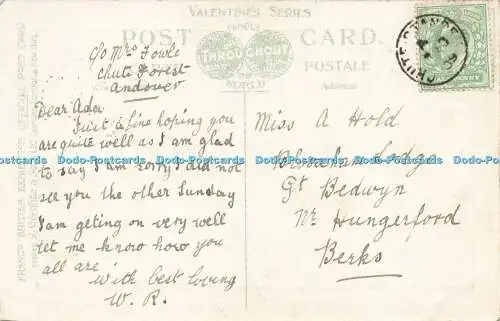 VALENTINE'S SERIES
POST CARD.
FAMOUS
THROUGHOUT
THE
WORLD
POSTALE
Address
FRANCO BRITISH EXHIBITION OFFICIAL POST CARD
C/o Mrs Fowle
Chute Forest
Andover
Dear Ada
Just a line hoping you
are quite well as I am glad
to say I am Sorry I did not
see you the other Sunday
I am geting on very well
let me know how you
all are
With best loving
W. R.
Miss A Hold
Lodge
Gt Bedwyn
Nr Hungerford
Berks
CHUTE
PENNY
Dodo-Postcards Dodo-Postcards Dodo-Postcards Dodo-Postcards